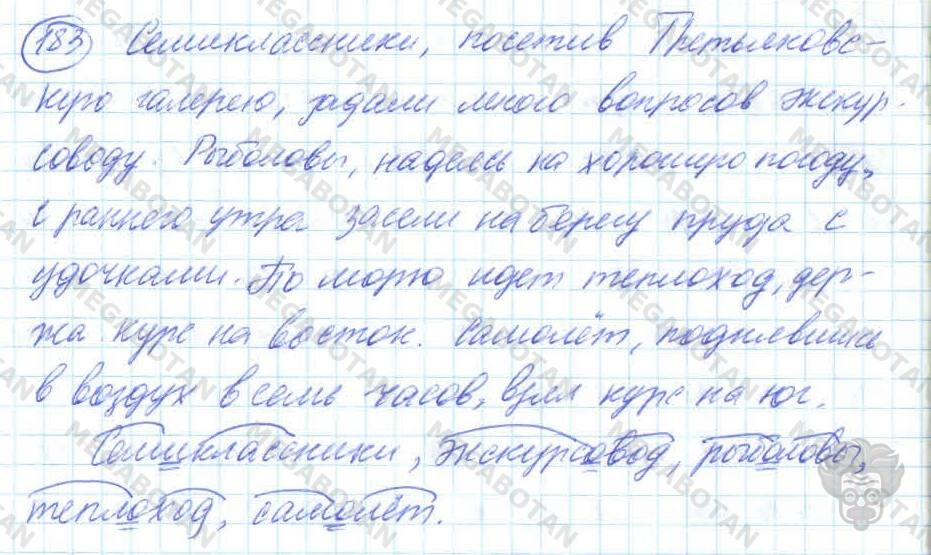 183 Семиклассники, посетив Третьяковс-
кую галерею, задали много вопросов экскур-
соводу. Рыболовы, надеясь на хорошую погоду,
с раннего утра засели на берегу пруда с
удочками. По морю идет теплоход, дер-
жа курс на восток. Самолёт, поднявшись
в воздух в семь часов, взял курс на юг.
Семиклассники, экскурсовод, рыболовы,
теплоход, самолёт.
MEGABOTAN